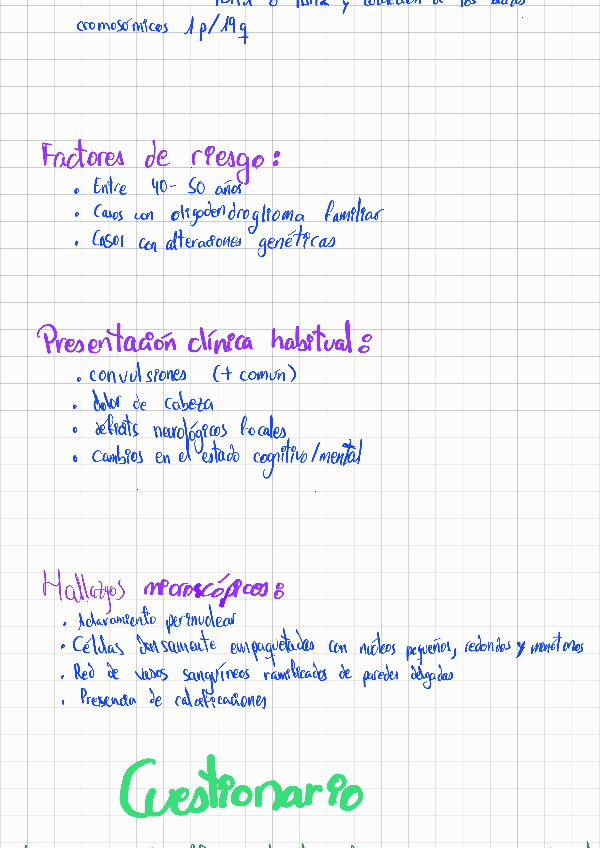 cromosómicos 1p/19q
Factores de riesgo:
• Entre 40-50 años
• Casos con oligodendroglioma familiar
• Casos con alteraciones genéticas
Presentación clínica habitual:
• convulsiones (+ común)
• dolor de cabeza
• déficits neurológicos focales
• cambios en el estado cognitivo/mental
Hallazgos microscópicos:
• Aclaramiento perinuclear
• Células densamente empaquetadas con núcleos pequeños, redondos y monótonos
• Red de vasos sanguíneos ramificados de paredes delgadas
• Presencia de calcificaciones
Cuestionario